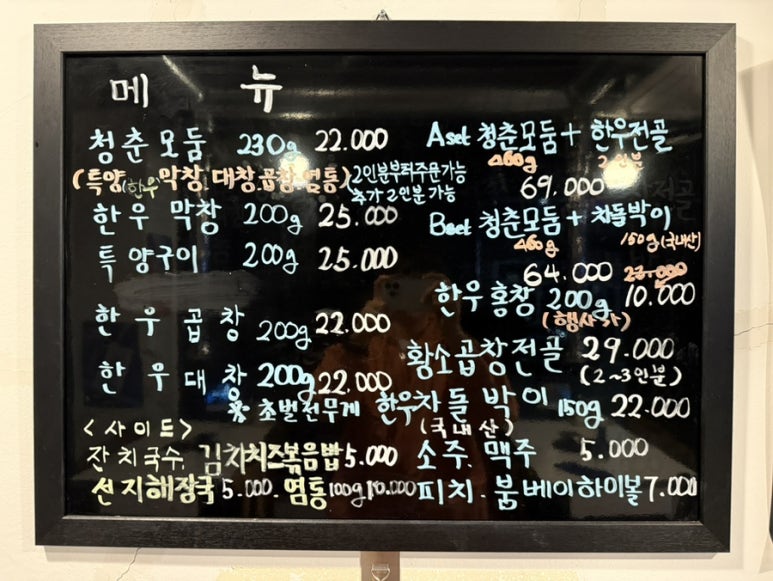 메 뉴
청춘모둠 230g 22.000
(특양(한우)막창 대창 곱창 염통) 2인분부터주문가능
추가 2인분 가능
한우 막창 200g 25.000
특양구이 200g 25.000
한우 곱창 200g 22.000
한우대창 200g 22.000
※ 초벌전무게
<사이드>
잔치국수. 김치치즈볶음밥 5.000
선지해장국 5.000. 염통 100g 10.000
Aset 청춘모둠 + 한우전골
460g 2인분
69.000
Bset 청춘모둠 + 차돌박이
460g 150g(국내산)
64.000
한우 홍창 200g 23.000 10.000
(행사가)
황소곱창전골 29.000
(2~3인분)
한우차돌박이 150g 22.000
(국내산)
소주. 맥주 5.000
피치. 붐베이하이볼 7.000